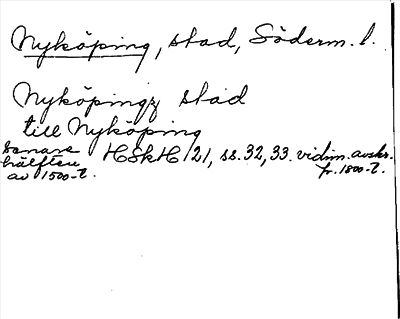 Nyköping, stad, Söderm. l.
Nyköpingz stad
till Nyköping
senare hälften av 1500-t.
HSkH 121, ss. 32, 33. vidim. avskr. fr. 1800-t.